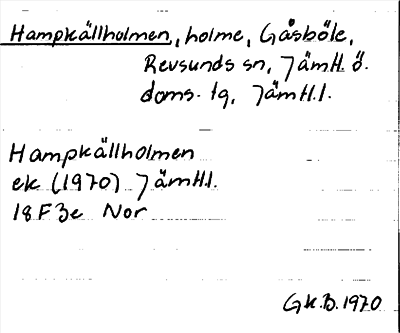 Hampkällholmen, holme, Gåsböle,
Revsunds sn, Jämtl. ö.
doms. tg, Jämtl. l.
Hampkällholmen
ek (1970) Jämtl.l.
18F3e Nor
Gk.B.1970